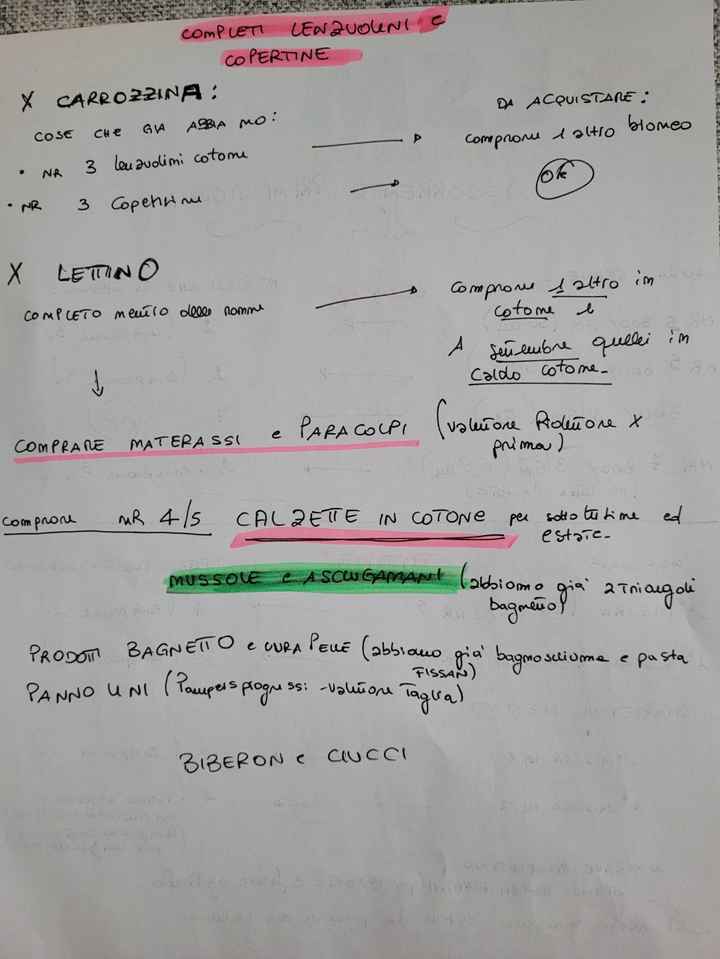 COMPLETI LENZUOLINI e
COPERTINE
X CARROZZINA:
COSE CHE GIA ABBIAMO:
DA ACQUISTARE:
• NR 3 lenzuolini cotone
comprare 1 altro bianco
• NR 3 Copertine
OK
X LETTINO
COMPLETO nonna
comprare 1 altro in
cotone e
A settembre quelli in
caldo cotone-
COMPRARE MATERASSI e PARACOLPI (valutare Riduttore X
prima)
comprare NR 4/5 CALZETTE IN COTONE per sotto tutine ed
estate-
MUSSOLE e ASCIUGAMANI (abbiamo già 2 Triangoli
bagnetto)
PRODOTTI BAGNETTO e CURA PELLE (abbiamo già bagnoschiuma e pasta
FISSAN)
PANNOLINI (Pampers progressi - valutare Taglia)
BIBERON e CIUCCI